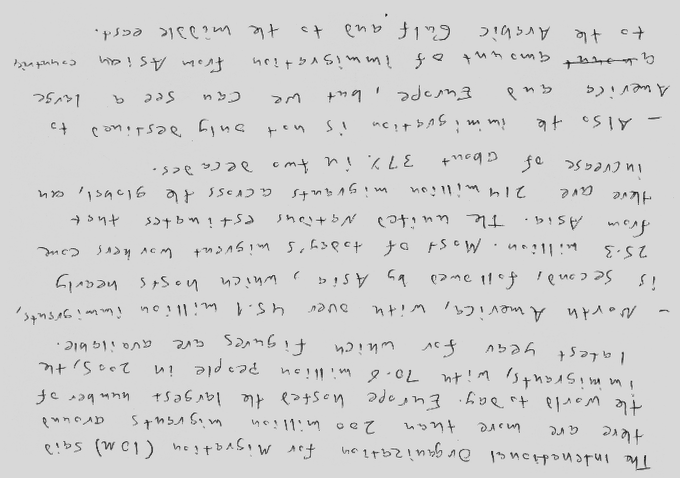 The International Organization for Migration (IOM) said
there are more than 200 million migrants around
the world today. Europe hosted the largest number of
immigrants, with 70.6 million people in 2005, the
latest year for which figures are available.
- North America, with over 45.1 million immigrants,
is second, followed by Asia, which hosts nearly
25.3 million. Most of today's migrant workers come
from Asia. The united Nations estimates that
there are 214 million migrants across the globel, an
increase of about 37% in two decades.
- Also the immigration is not only destined to
America and Europe, but, we can see a large
amount of immigration from Asian countries
to the Arabic Gulf and to the middle east.